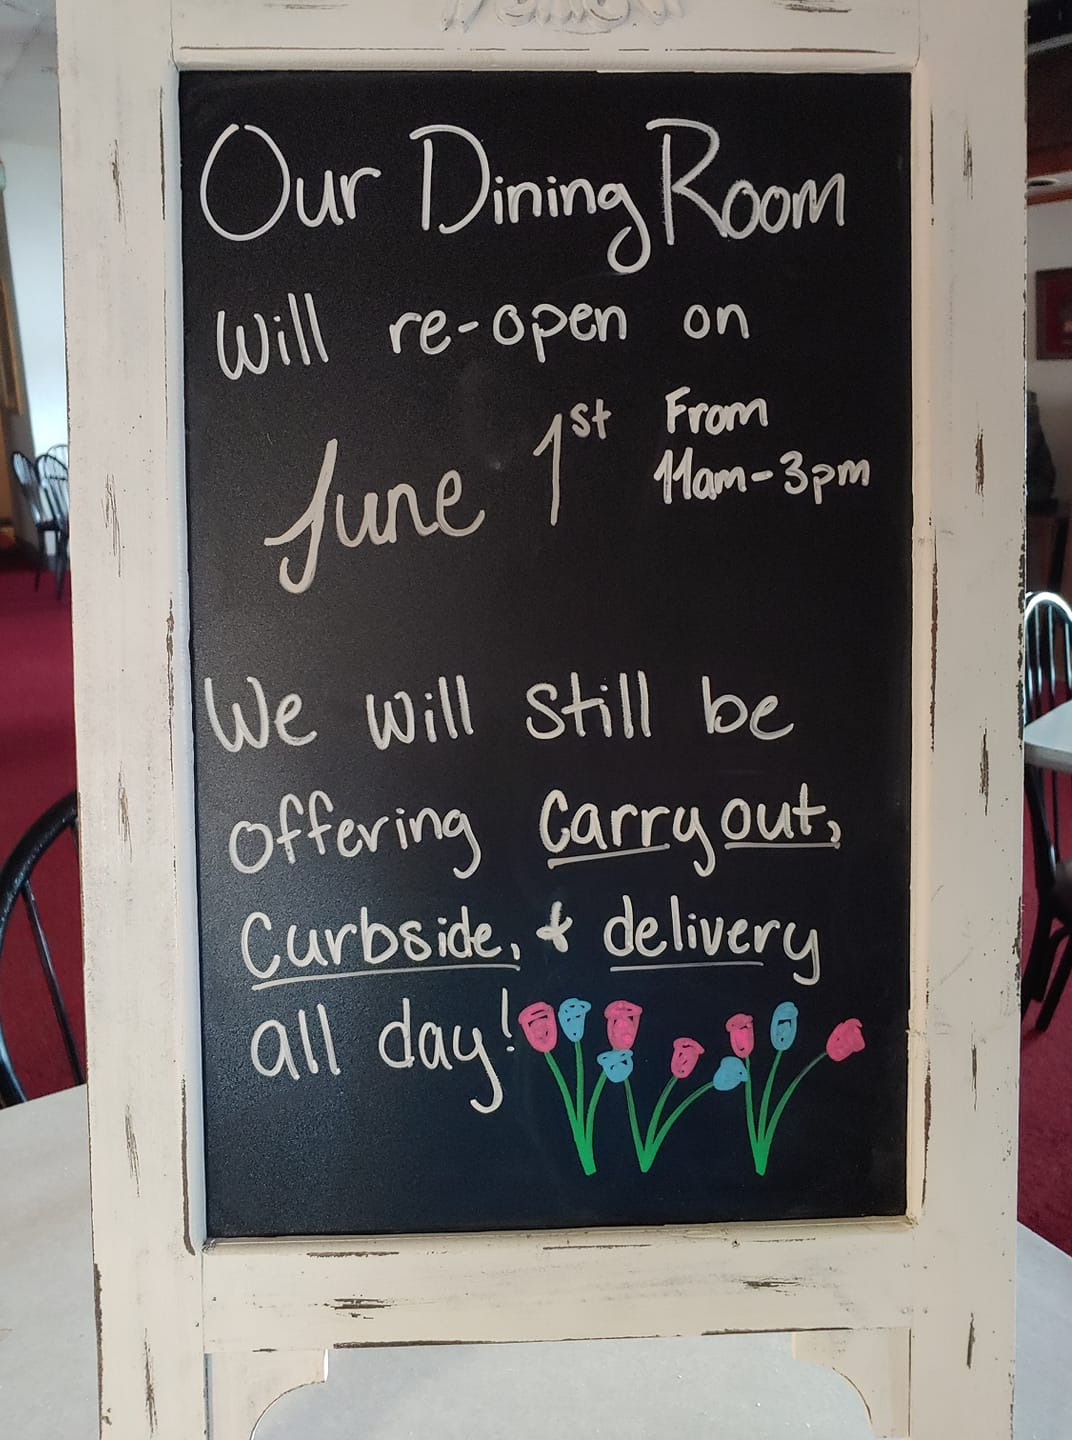 Our Dining Room
Will re-open on
June 1st From
11am-3pm
We will still be
offering Carryout,
Curbside, & delivery
all day!